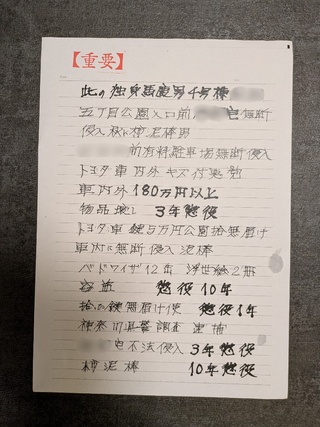 【重要】
此の独身 男4号棟
五丁目公園入口前 宅無断
侵入 泥棒男
前有料駐車場無断侵入
トヨタ車内外キズ付
車内外180万円以上
物品 3年懲役
トヨタ車鍵5万円公園拾無届け
車内に無断侵入泥棒
12缶 浮世絵2冊
懲役10年
拾った鍵無届け使 懲役1年
神奈川県警調査 逮捕
宅不法侵入 3年懲役
泥棒 10年懲役